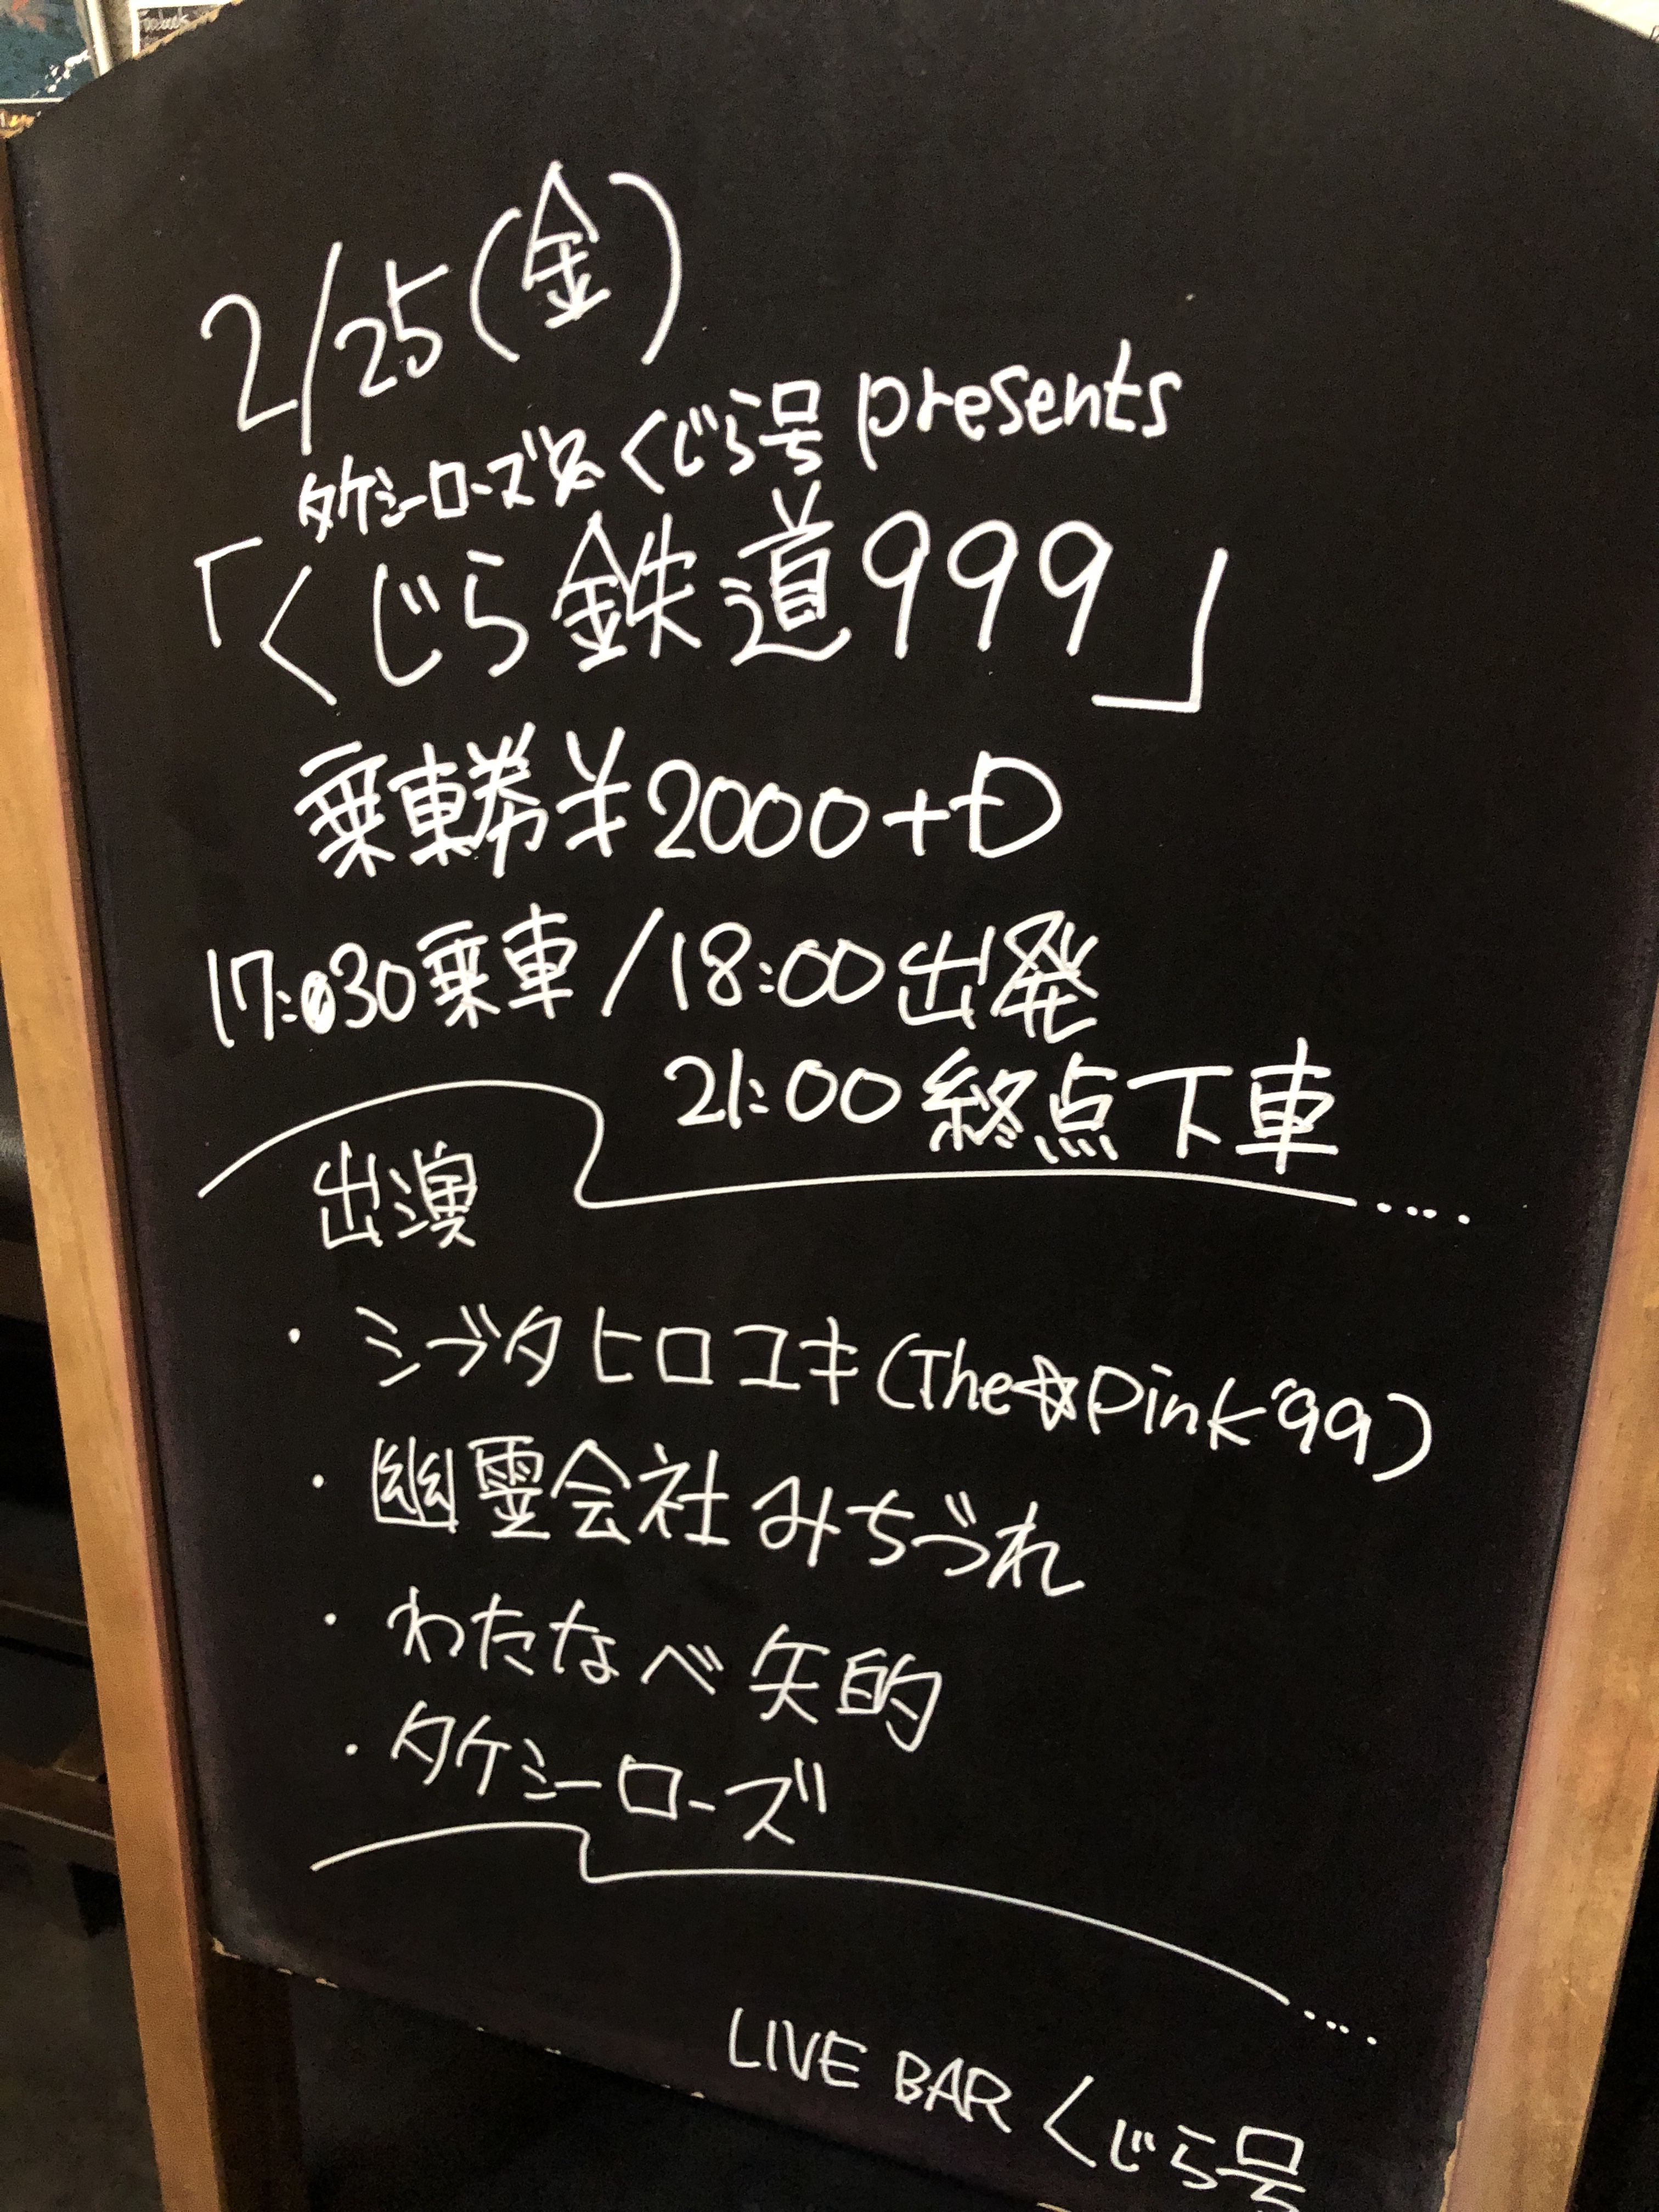 2/25(金)
タケシーローズ&くじら号 presents
「くじら鉄道999」
乗車券¥2000+D
17:30乗車/18:00出発
21:00終点下車
出演
・シブタヒロユキ(The☆Pink"99)
・幽霊会社みちづれ
・わたなべ矢的
・タケシーローズ
LIVE BAR くじら号